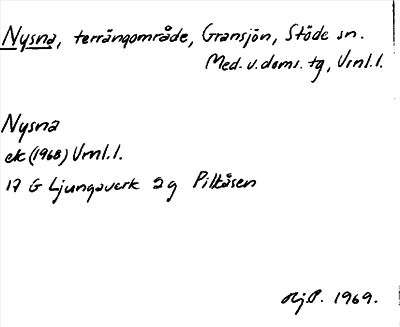 Nysna, terrängområde, Gransjön, Stöde sn.
Med. v. doms. tg, Vrnl. l.
Nysna
ek (1968) Vrnl. l.
17 G Ljungaverk 2g Pilkåsen
Hj.P. 1969.